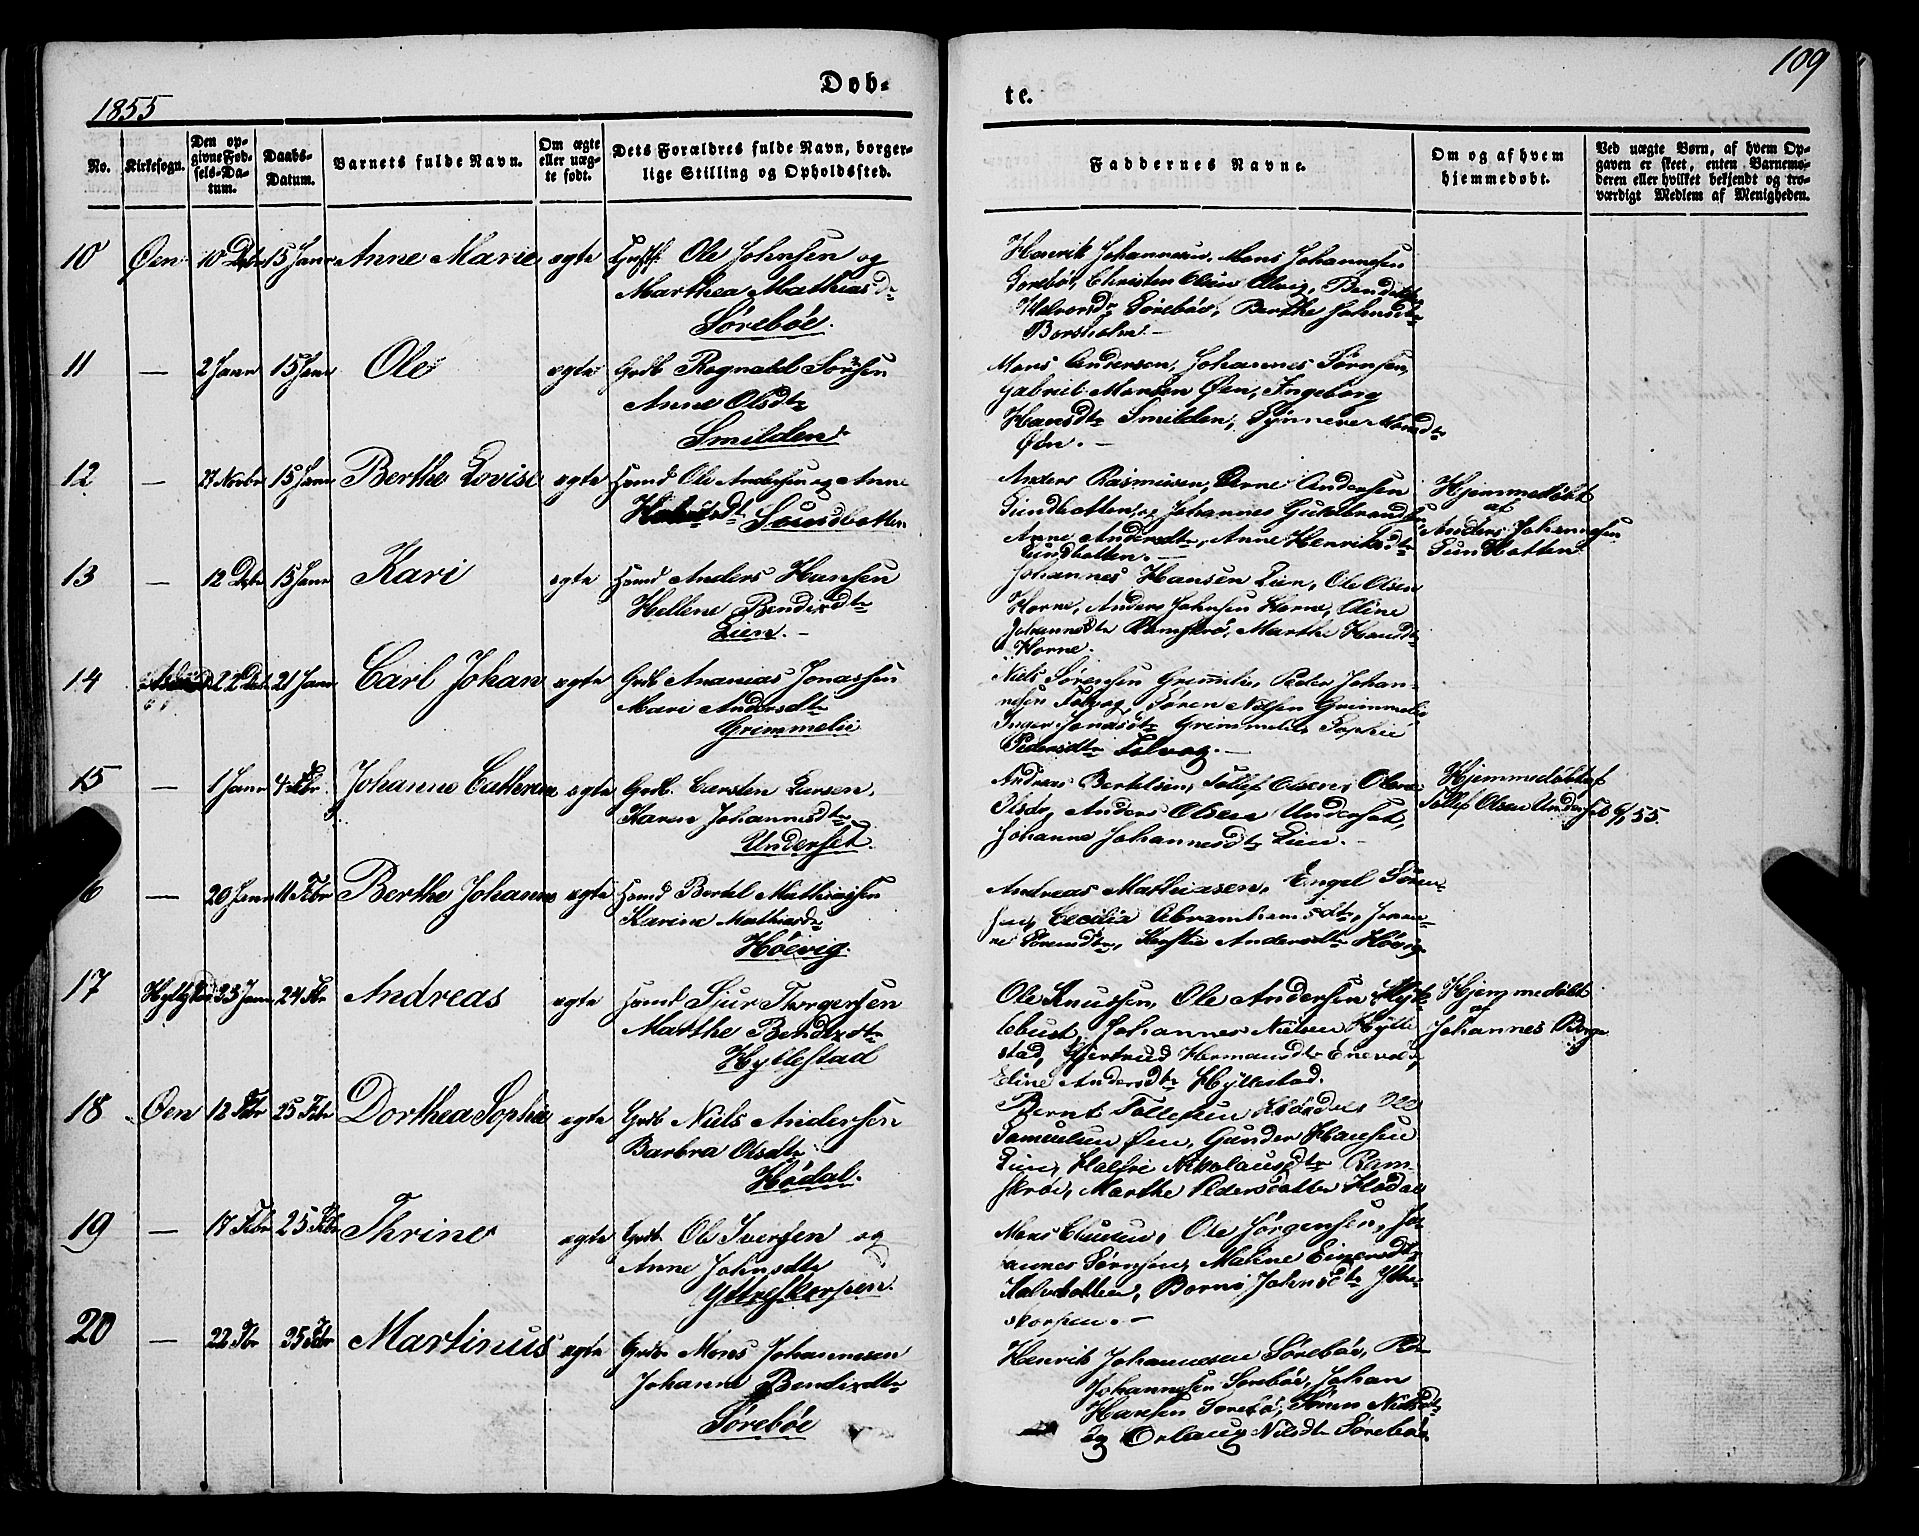 109
1855
Døb-
te.
No.
Kirkesogn.
Den op-
givne Fød-
sels-Da-
tum.
Daabs-
Datum.
Barnets fulde Navn.
Om ægte
eller uæg-
te født.
Dets Forældres fulde Navn, borger-
lige Stilling og Opholdssted.
Faddernes Navne.
Om og af hvem
hjemmedøbt.
Ved uægte Børn, af hvem Op-
gaven er skeet, enten Barnemo-
deren eller hvilket bekjendt og tro-
værdigt Medlem af Menigheden.
10 Øen 10 Debr 15 Janr Anne Marie ægte Ole Johnsen og
Marthea Mathiasdr
Sørebøe.
Henrik Johannesen, Mons Johannesen
Sørebø, Christen Olsen
Halvorsdr Sørebøe, Berthe Johnsdtr
Borsholm. -
11 — 2 Janr 15 Janr Ole ægte Grdb Ragnald
Anne Olsdtr
Smilden
Mons Andersen, Johannes Sørnsen,
Gabriel Monsen Øen, Ingeborg
Hansdtr Smilden, Synneve Monsdtr
Øen. -
12 — 27 Novbr 15 Janr Berthe Lovise ægte Huusmd Ole Andersen og Anne
Sundbotten
Anders Rasmusen, Arne Andersen
Sundbotten, Johannes
Anne Andersdtr, Anne Henriksdtr
Sundbotten. -
Hjemmedøbt
af
Anders Johannesen
Sundbotten
13 — 12 Debr 15 Janr Kari ægte Huusmd Anders Hansen
Hellene Bendixdtr
Lien. -
Johannes Hansen Lien, Ole Olsen
Horne, Anders Johnsen Horne, Oline
Johannesdtr Ramskrø, Marthe Hansdtr
Horne.
14 22 Debr 21 Janr Carl Johan ægte Grdb Ananias Jonassen
Mari Andersdtr
Grimmelie
Niels Sørensen Grimmelie, Peder Johan-
nesen Tolvaag, Søren Nilsen Grimmelie
Inger Jonasdtr Grimmelie, Sophie
Pedersdtr Tolvog. -
15 — 1 Janr 4 Febr. Johanne Cathrine ægte Grdb. Carsten Larsen,
Karen Johannesdtr
Underset.
Andreas Bertelsen, Tollef Olsen, Olene
Olsdr, Anders Olsen Underset,
Johanne Johannesdtr Lien. -
Hjemmedøbt af
Tollef Olsen Underset 6/1 55.
16 — 20 Janr 11 Febr Berthe Johanne ægte Huusmd Bertel Mathiassen
Karine Mathiasdr
Høevig.
Andreas Mathiasen, Engel Søren-
sen, Cecilia Abramhamsdtr,
ne Sørensdtr, Kirstie Andersdtr Høevig
17 23 Janr 24 Febr Andreas ægte Huusmd Sjur Thorgersen
Marthe Bendixdtr
Hyllestad
Ole Knussen, Ole Andersen Mykle-
lebust, Johannes Nielsen Hylle-
stad, Gjertrud Hermansdtr
Eline Andersdtr Hyllestad.
Hjemmedøbt
af
Johannes Berge
18 Øen 12 Febr 25 Febr Dorthea Sophie ægte Grdb Niels Andersen
Barbra Olsdtr
Hødal.
Bernt Tollefsen Hødal, Ole
Samuelsen Øen, Gunder Hansen
Lien, Nikolausdtr Ram-
skrøe, Marthe Pedersdatter Hødal
19 — 17 Febr 25 Febr Thrine ægte Grdb Ole Iversen og
Anne Johnsdtr
Yttreskorpen.
Mons Clausen, Ole Jørgensen, Jo-
hannes Sørnsen, Maline Einersdtr
Johnsdtr Yttre-
skorpen. -
20 — 22 Febr 25 Febr Martinus ægte Grdbr Mons Johannesen
Johanne Bendixdtr
Sørebøe
Henrik Johannesen Sørebøe, Peder
Johannesen Sørebøe, Johan
Hansen Sørebø,
og Nilsdtr Sørebøe